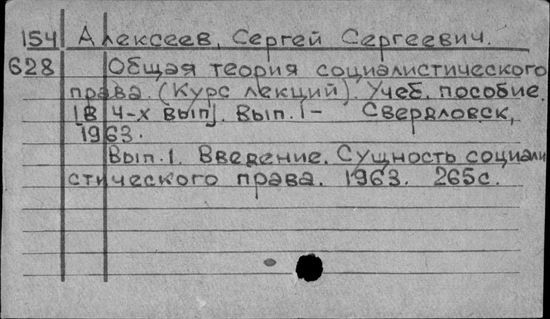 154 Алексеев, Сергей Сергеевич.
628 Общая теория социалистического
права. (Курс лекций). Учеб. пособие.
[В 4-х вып]. Вып. 1- Свердловск,
1963.
Вып. 1. Введение. Сущность социали
стического права. 1963. 265с.